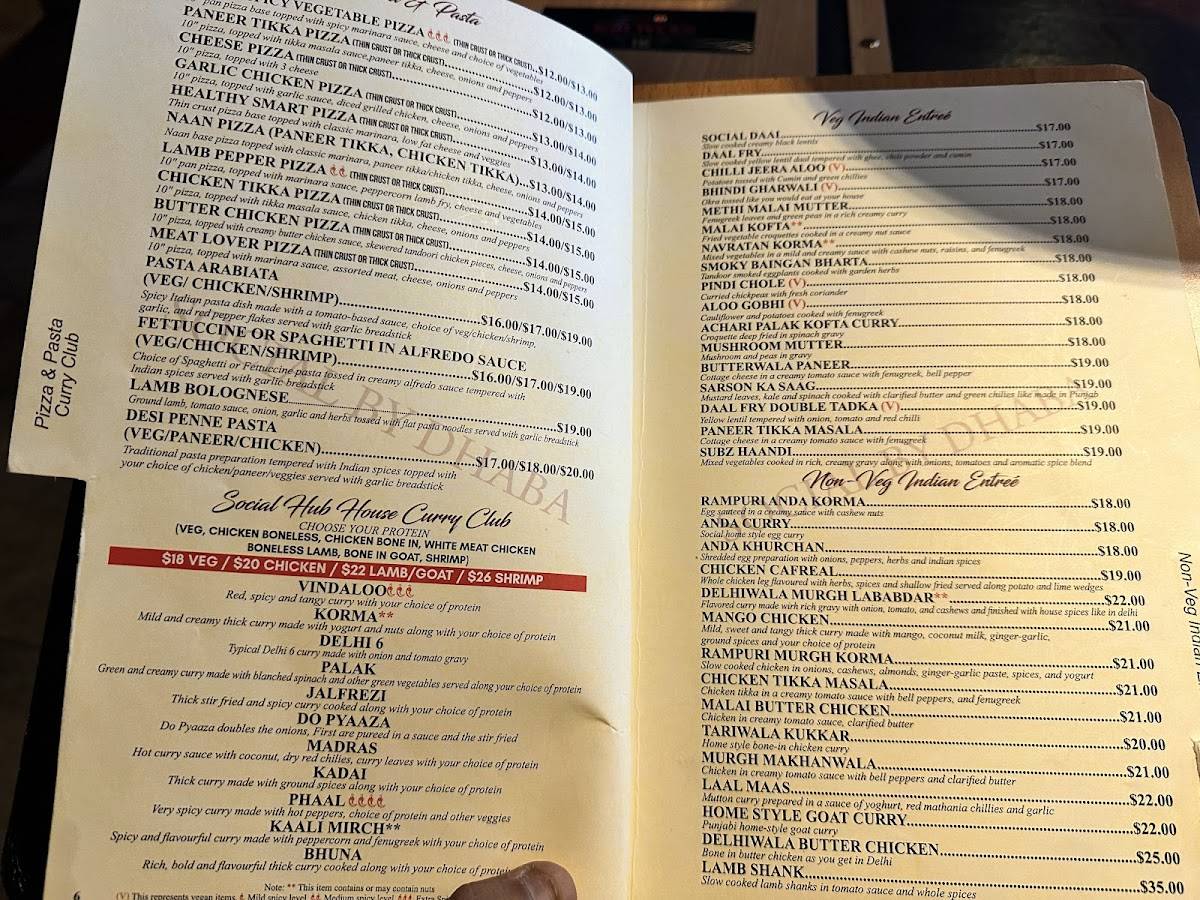 & Pasta
SPICY VEGETABLE PIZZA (THIN CRUST OR THICK CRUST)...$12.00/$13.00
10" pan pizza base topped with spicy marinara sauce, cheese and choice of vegetables
PANEER TIKKA PIZZA (THIN CRUST OR THICK CRUST)...$12.00/$13.00
10" pizza, topped with tikka masala sauce,paneer tikka, cheese, onions and peppers
CHEESE PIZZA (THIN CRUST OR THICK CRUST)...$12.00/$13.00
10" pizza, topped with 3 cheese
GARLIC CHICKEN PIZZA (THIN CRUST OR THICK CRUST)...$13.00/$14.00
10" pizza, topped with garlic sauce, diced grilled chicken, cheese, onions and peppers
HEALTHY SMART PIZZA (THIN CRUST OR THICK CRUST)...$13.00/$14.00
Thin crust pizza base topped with classic marinara, low fat cheese and veggies
NAAN PIZZA (PANEER TIKKA, CHICKEN TIKKA)...$13.00/$14.00
Naan base pizza topped with classic marinara, paneer tikka/chicken tikka, cheese, onions and peppers
LAMB PEPPER PIZZA (THIN CRUST OR THICK CRUST)...$14.00/$15.00
10" pan pizza, topped with marinara sauce, peppercorn lamb fry, cheese and vegetables
CHICKEN TIKKA PIZZA (THIN CRUST OR THICK CRUST)...$14.00/$15.00
10" pizza, topped with tikka masala sauce, chicken tikka, cheese, onions and peppers
BUTTER CHICKEN PIZZA (THIN CRUST OR THICK CRUST)...$14.00/$15.00
10" pizza, topped with creamy butter chicken sauce, skewered tandoori chicken pieces, cheese, onions and peppers
MEAT LOVER PIZZA (THIN CRUST OR THICK CRUST)...$14.00/$15.00
10" pizza, topped with marinara sauce, assorted meat, cheese, onions and peppers
PASTA ARABIATA
(VEG/ CHICKEN/SHRIMP)...$16.00/$17.00/$19.00
Spicy Italian pasta dish made with a tomato-based sauce, choice of veg/chicken/shrimp,
garlic, and red pepper flakes served with garlic breadstick
FETTUCCINE OR SPAGHETTI IN ALFREDO SAUCE
(VEG/CHICKEN/SHRIMP)...$16.00/$17.00/$19.00
Choice of Spaghetti or Fettuccine pasta tossed in creamy alfredo sauce tempered with
Indian spices served with garlic breadstick
LAMB BOLOGNESE...$19.00
Ground lamb, tomato sauce, onion, garlic and herbs tossed with flat pasta noodles served with garlic breadstick
DESI PENNE PASTA
(VEG/PANEER/CHICKEN)...$17.00/$18.00/$20.00
Traditional pasta preparation tempered with Indian spices topped with
your choice of chicken/paneer/veggies served with garlic breadstick
BY DHABA
Pizza & Pasta
Curry Club
Social Hub House Curry Club
CHOOSE YOUR PROTEIN
(VEG, CHICKEN BONELESS, CHICKEN BONE IN, WHITE MEAT CHICKEN
BONELESS LAMB, BONE IN GOAT, SHRIMP)
$18 VEG / $20 CHICKEN / $22 LAMB/GOAT / $26 SHRIMP
VINDALOO
Red, spicy and tangy curry with your choice of protein
KORMA**
Mild and creamy thick curry made with yogurt and nuts along with your choice of protein
DELHI 6
Typical Delhi 6 curry made with onion and tomato gravy
PALAK
Green and creamy curry made with blanched spinach and other green vegetables served along your choice of protein
JALFREZI
Thick stir fried and spicy curry cooked along with your choice of protein
DO PYAAZA
Do Pyaaza doubles the onions, First are pureed in a sauce and the stir fried
MADRAS
Hot curry sauce with coconut, dry red chilies, curry leaves with your choice of protein
KADAI
Thick curry made with ground spices along with your choice of protein
PHAAL
Very spicy curry made with hot peppers, choice of protein and other veggies
KAALI MIRCH**
Spicy and flavourful curry made with peppercorn and fenugreek with your choice of protein
BHUNA
Rich, bold and flavourful thick curry cooked along with your choice of protein
Note: ** This item contains or may contain nuts
6 (V) This represents vegan items, Mild spicy level, Medium spicy level, Extra
Veg Indian Entreé
SOCIAL DAAL...$17.00
Slow cooked creamy black lentils
DAAL FRY...$17.00
Slow cooked yellow lentil daal tempered with ghee, chili powder and cumin
CHILLI JEERA ALOO (V)...$17.00
Potatoes tossed with Cumin and green chillies
BHINDI GHARWALI (V)...$17.00
Okra tossed like you would eat at your house
METHI MALAI MUTTER...$18.00
Fenugreek leaves and green peas in a rich creamy curry
MALAI KOFTA**...$18.00
Fried vegetable croquettes cooked in a creamy nut sauce
NAVRATAN KORMA**...$18.00
Mixed vegetables in a mild and creamy sauce with cashew nuts, raisins, and fenugreek
SMOKY BAINGAN BHARTA...$18.00
Tandoor smoked eggplants cooked with garden herbs
PINDI CHOLE (V)...$18.00
Curried chickpeas with fresh coriander
ALOO GOBHI (V)...$18.00
Cauliflower and potatoes cooked with fenugreek
ACHARI PALAK KOFTA CURRY...$18.00
Croquette deep fried in spinach gravy
MUSHROOM MUTTER...$18.00
Mushroom and peas in gravy
BUTTERWALA PANEER...$19.00
Cottage cheese in a creamy tomato sauce with fenugreek, bell pepper
SARSON KA SAAG...$19.00
Mustard leaves, kale and spinach cooked with clarified butter and green chilies like made in Punjab
DAAL FRY DOUBLE TADKA (V)...$19.00
Yellow lentil tempered with onion, tomato and red chilli
PANEER TIKKA MASALA...$19.00
Cottage cheese in a creamy tomato sauce with fenugreek
SUBZ HAANDI...$19.00
Mixed vegetables cooked in rich, creamy gravy along with onions, tomatoes and aromatic spice blend
BY DHABA
Non-Veg Indian Entreé
RAMPURI ANDA KORMA...$18.00
Egg sauteed in a creamy sauce with cashew nuts
ANDA CURRY...$18.00
Social home style egg curry
ANDA KHURCHAN...$18.00
Shredded egg preparation with onions, peppers, herbs and indian spices
CHICKEN CAFREAL...$19.00
Whole chicken leg flavoured with herbs, spices and shallow fried served along potato and lime wedges
DELHIWALA MURGH LABABDAR**...$22.00
Flavored curry made wirh rich gravy with onion, tomato, and cashews and finished with house spices like in delhi
MANGO CHICKEN...$21.00
Mild, sweet and tangy thick curry made with mango, coconut milk, ginger-garlic,
ground spices and your choice of protein
RAMPURI MURGH KORMA...$21.00
Slow cooked chicken in onions, cashews, almonds, ginger-garlic paste, spices, and yogurt
CHICKEN TIKKA MASALA...$21.00
Chicken tikka in a creamy tomato sauce with bell peppers, and fenugreek
MALAI BUTTER CHICKEN...$21.00
Chicken in creamy tomato sauce, clarified butter
TARIWALA KUKKAR...$20.00
Home style bone-in chicken curry
MURGH MAKHANWALA...$21.00
Chicken in creamy tomato sauce with bell peppers and clarified butter
LAAL MAAS...$22.00
Mutton curry prepared in a sauce of yoghurt, red mathania chillies and garlic
HOME STYLE GOAT CURRY...$22.00
Punjabi home-style goat curry
DELHIWALA BUTTER CHICKEN...$25.00
Bone in butter chicken as you get in Delhi
LAMB SHANK...$35.00
Slow cooked lamb shanks in tomato sauce and whole spices
Non-Veg Indian